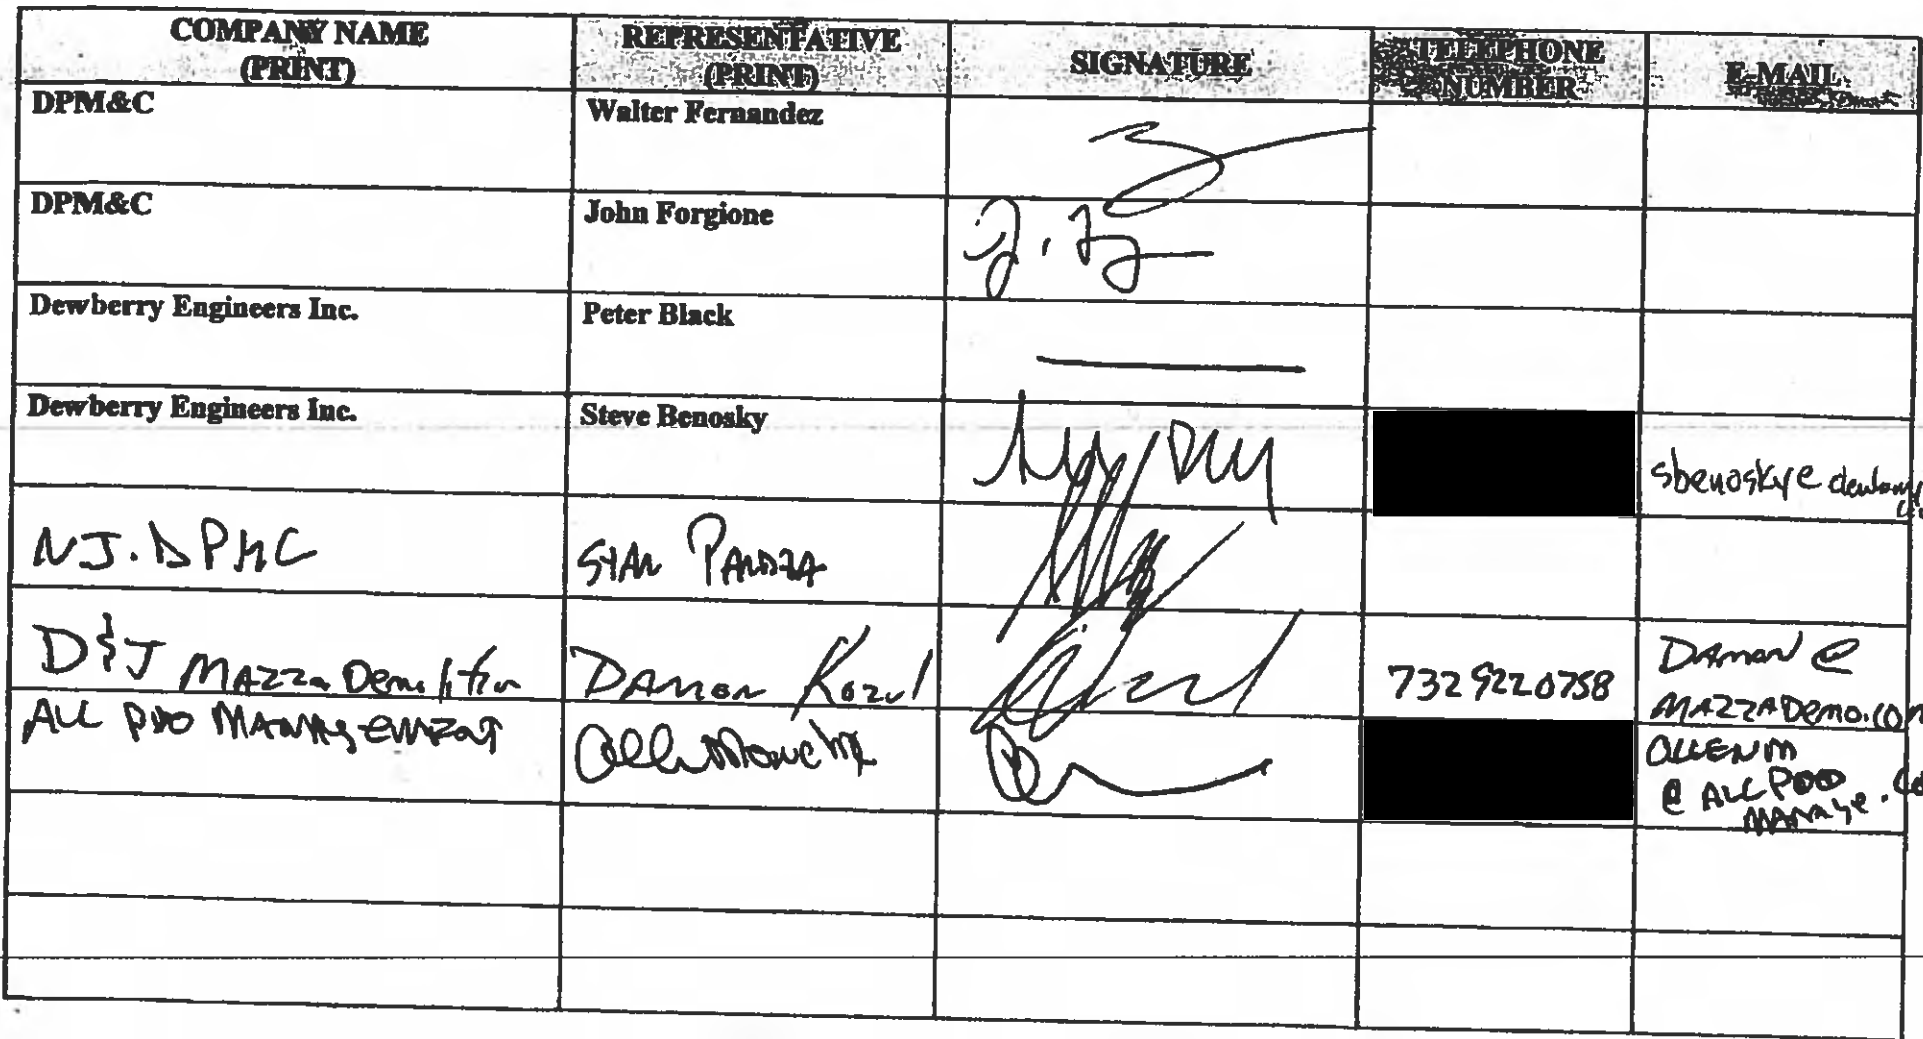 COMPANY NAME
(PRINT)
REPRESENTATIVE
(PRINT)
SIGNATURE
TELEPHONE
NUMBER
E-MAIL
DPM&C
Walter Fernandez
DPM&C
John Forgione
Dewberry Engineers Inc.
Peter Black
Dewberry Engineers Inc.
Steve Benosky
NJ. DPMC
D&J Mazza Demolition
Damon Kozul
732 922 0758
Damon @
MAZZADemo.com
ALL PRO MANAGEMENT
ALLENM
@ ALLPRO
MANAGE.